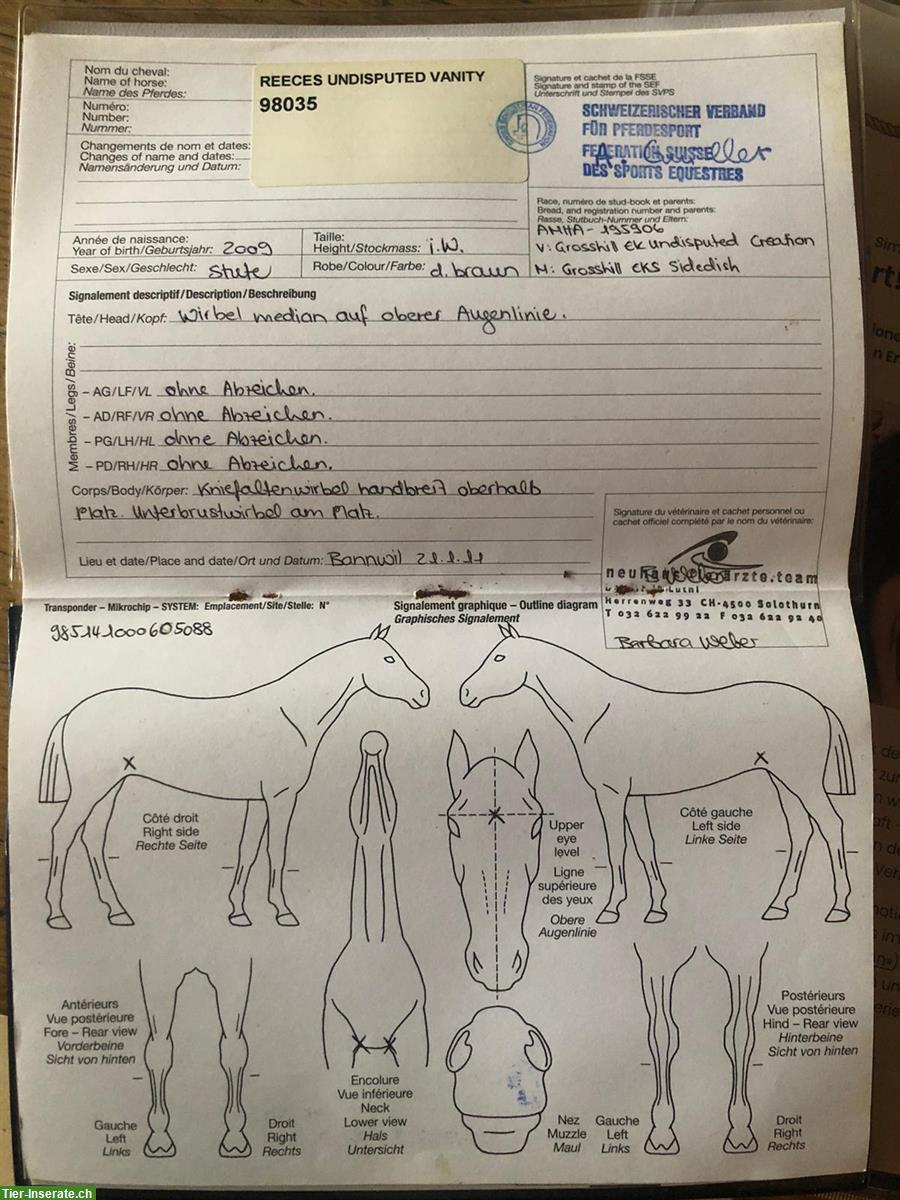 Nom du cheval:
Name of horse:
Name des Pferdes:
REECES UNDISPUTED VANITY
98035
Numéro:
Number:
Nummer:
Changements de nom et dates:
Changes of name and dates:
Namensänderung und Datum:
Signature et cachet de la FSSE
Signature and stamp of the SEF
Unterschrift und Stempel des SVPS
SCHWEIZERISCHER VERBAND
FÜR PFERDESPORT
FEDERATION SUISSE
DES SPORTS EQUESTRES
Race, numéro de stud-book et parents:
Bread, and registration number and parents:
Rasse, Stutbuch-Nummer und Eltern:
AMHA - 195906
V: Grosshill EK Undisputed Creation
M: Grosshill EKS Sidedish
Année de naissance:
Year of birth/Geburtsjahr: 2009
Taille:
Height/Stockmass: i.W.
Sexe/Sex/Geschlecht: Stute
Robe/Colour/Farbe: d. braun
Signalement descriptif/Description/Beschreibung
Tête/Head/Kopf: Wirbel median auf oberer Augenlinie.
Membres/Legs/Beine:
– AG/LF/VL ohne Abzeichen.
– AD/RF/VR ohne Abzeichen.
– PG/LH/HL ohne Abzeichen.
– PD/RH/HR ohne Abzeichen.
Corps/Body/Körper: Kniefaltenwirbel handbreit oberhalb
Platz. Unterbrustwirbel am Platz.
Lieu et date/Place and date/Ort und Datum: Bannwil 21.1.11
Signature du vétérinaire et cachet personnel ou
cachet officiel complété par le nom du vétérinaire:
Herrenweg 33 CH-4500 Solothurn
T 032 622 99 22 F 032 622 92 40
Barbara Weber
Transponder – Mikrochip – SYSTEM: Emplacement/Site/Stelle: N°
985141000605088
Signalement graphique – Outline diagram
Graphisches Signalement
Côté droit
Right side
Rechte Seite
Upper
eye
level
Ligne
supérieure
des yeux
Obere
Augenlinie
Côté gauche
Left side
Linke Seite
Antérieurs
Vue postérieure
Fore – Rear view
Vorderbeine
Sicht von hinten
Gauche
Left
Links
Droit
Right
Rechts
Encolure
Vue inférieure
Neck
Lower view
Hals
Untersicht
Nez
Muzzle
Maul
Postérieurs
Vue postérieure
Hind – Rear view
Hinterbeine
Sicht von hinten
Gauche
Left
Links
Droit
Right
Rechts
Tier-Inserate.ch